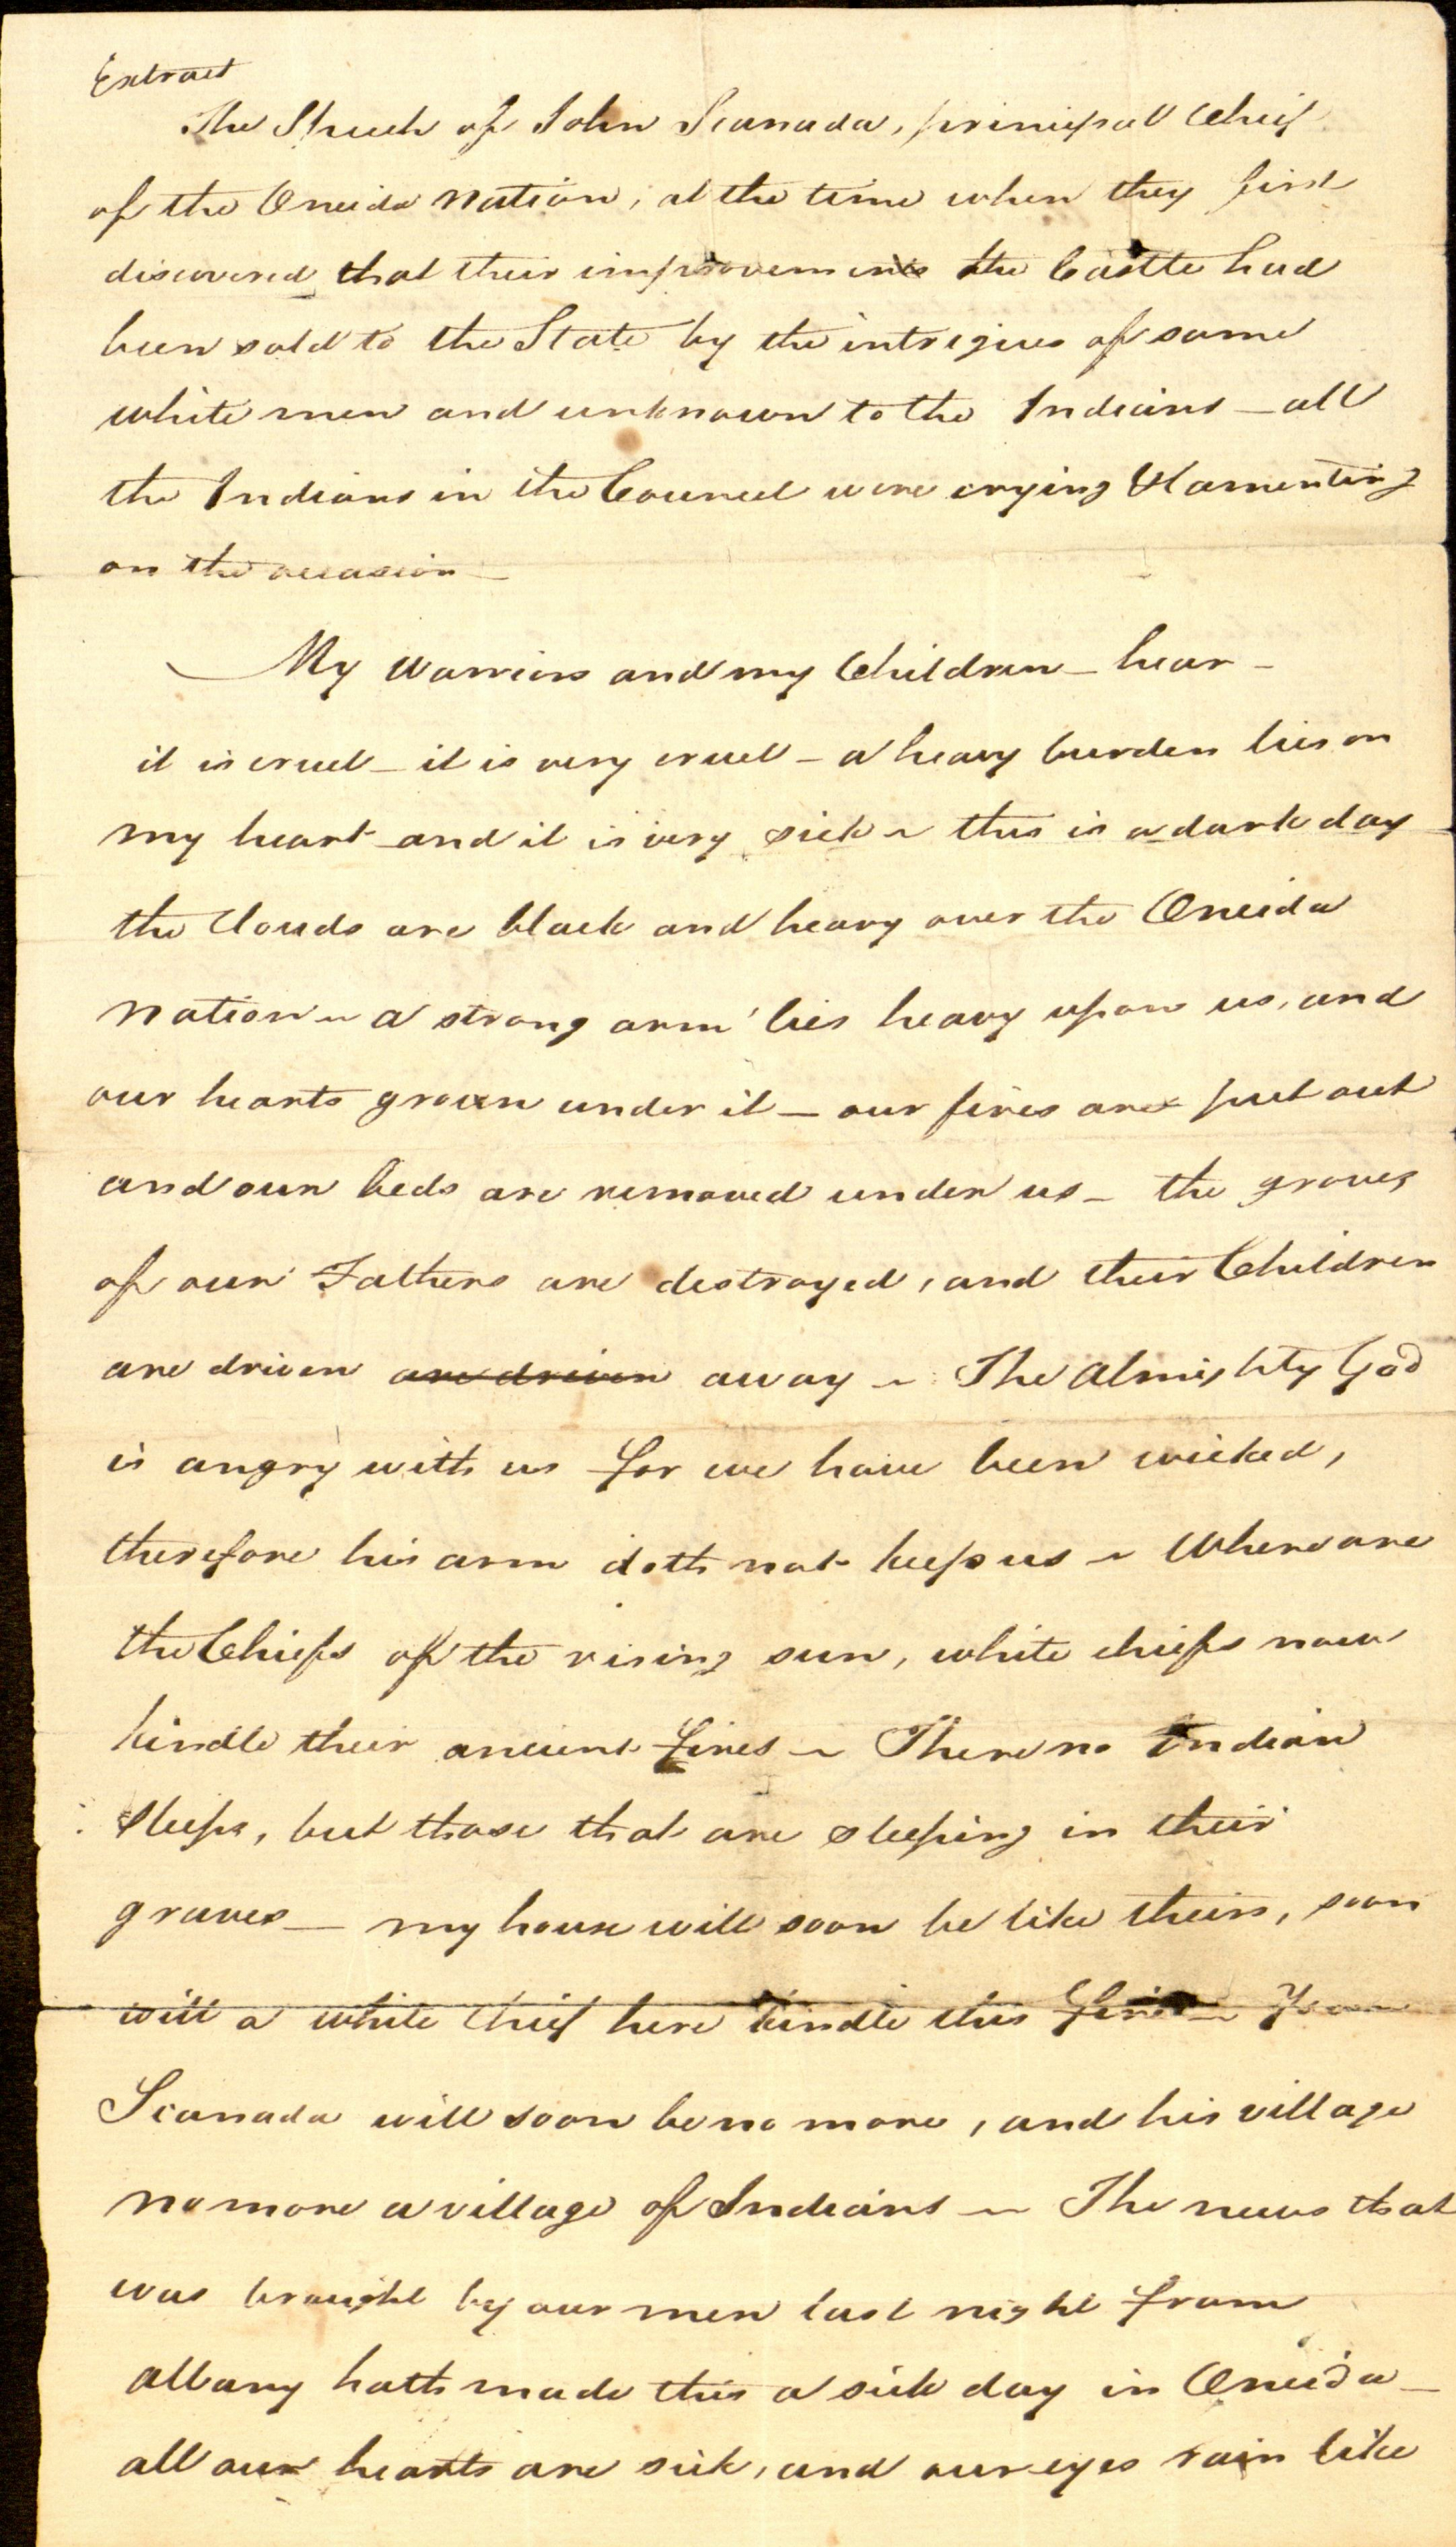 Extract
The Speech of John Scanada, principal Chief
of the Oneida Nation, at the time when they first
discovered that their improvements the Castle had
been sold to the State by the intrigues of some
white men and unknown to the Indians – all
the Indians in the Council were crying & lamenting
on the occasion –
My Warriors and my Children – hear –
it is cruel – it is very cruel – a heavy burden lies on
my heart and it is very sick ~ this is a dark day
the Clouds are black and heavy over the Oneida
Nation ~ a strong arm lies heavy upon us, and
our hearts groan under it – our fires are put out
and our beds are removed under us – the graves
of our Fathers are destroyed, and their Children
are driven are driven away ~ The Almighty God
is angry with us for we have been wicked,
therefore his arm doth not keep us ~ Where are
the Chiefs of the rising sun, white chiefs now
kindle their ancient fires ~ There no Indian
sleeps, but those that are sleeping in their
graves – my house will soon be like theirs, soon
will a white Chief here kindle this fire ~
Scanada will soon be no more, and his village
no more a village of Indians ~ The news that
was brought by our men last night from
Albany hath made this a sick day in Oneida –
all our hearts are sick, and our eyes rain like